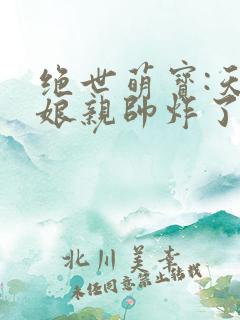 绝世萌寶:
娘親帥炸了
北川美
未经同意禁止转载